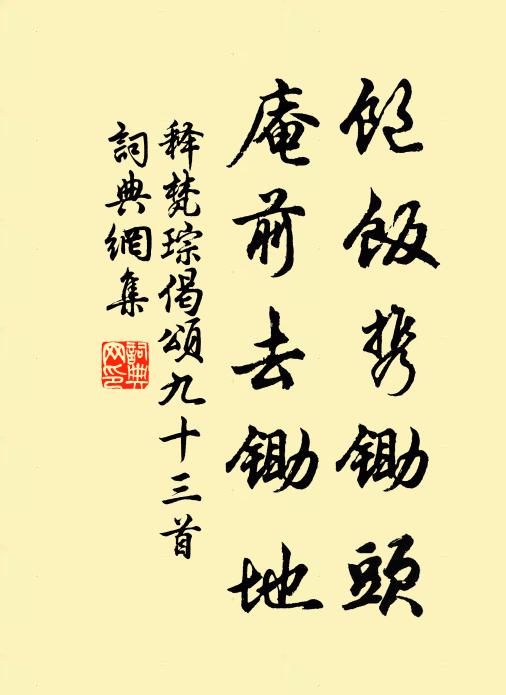 飽飯携鋤頭
庵前去鋤地
释梵琮偈頌九十三首
詞典網集
詞典網印